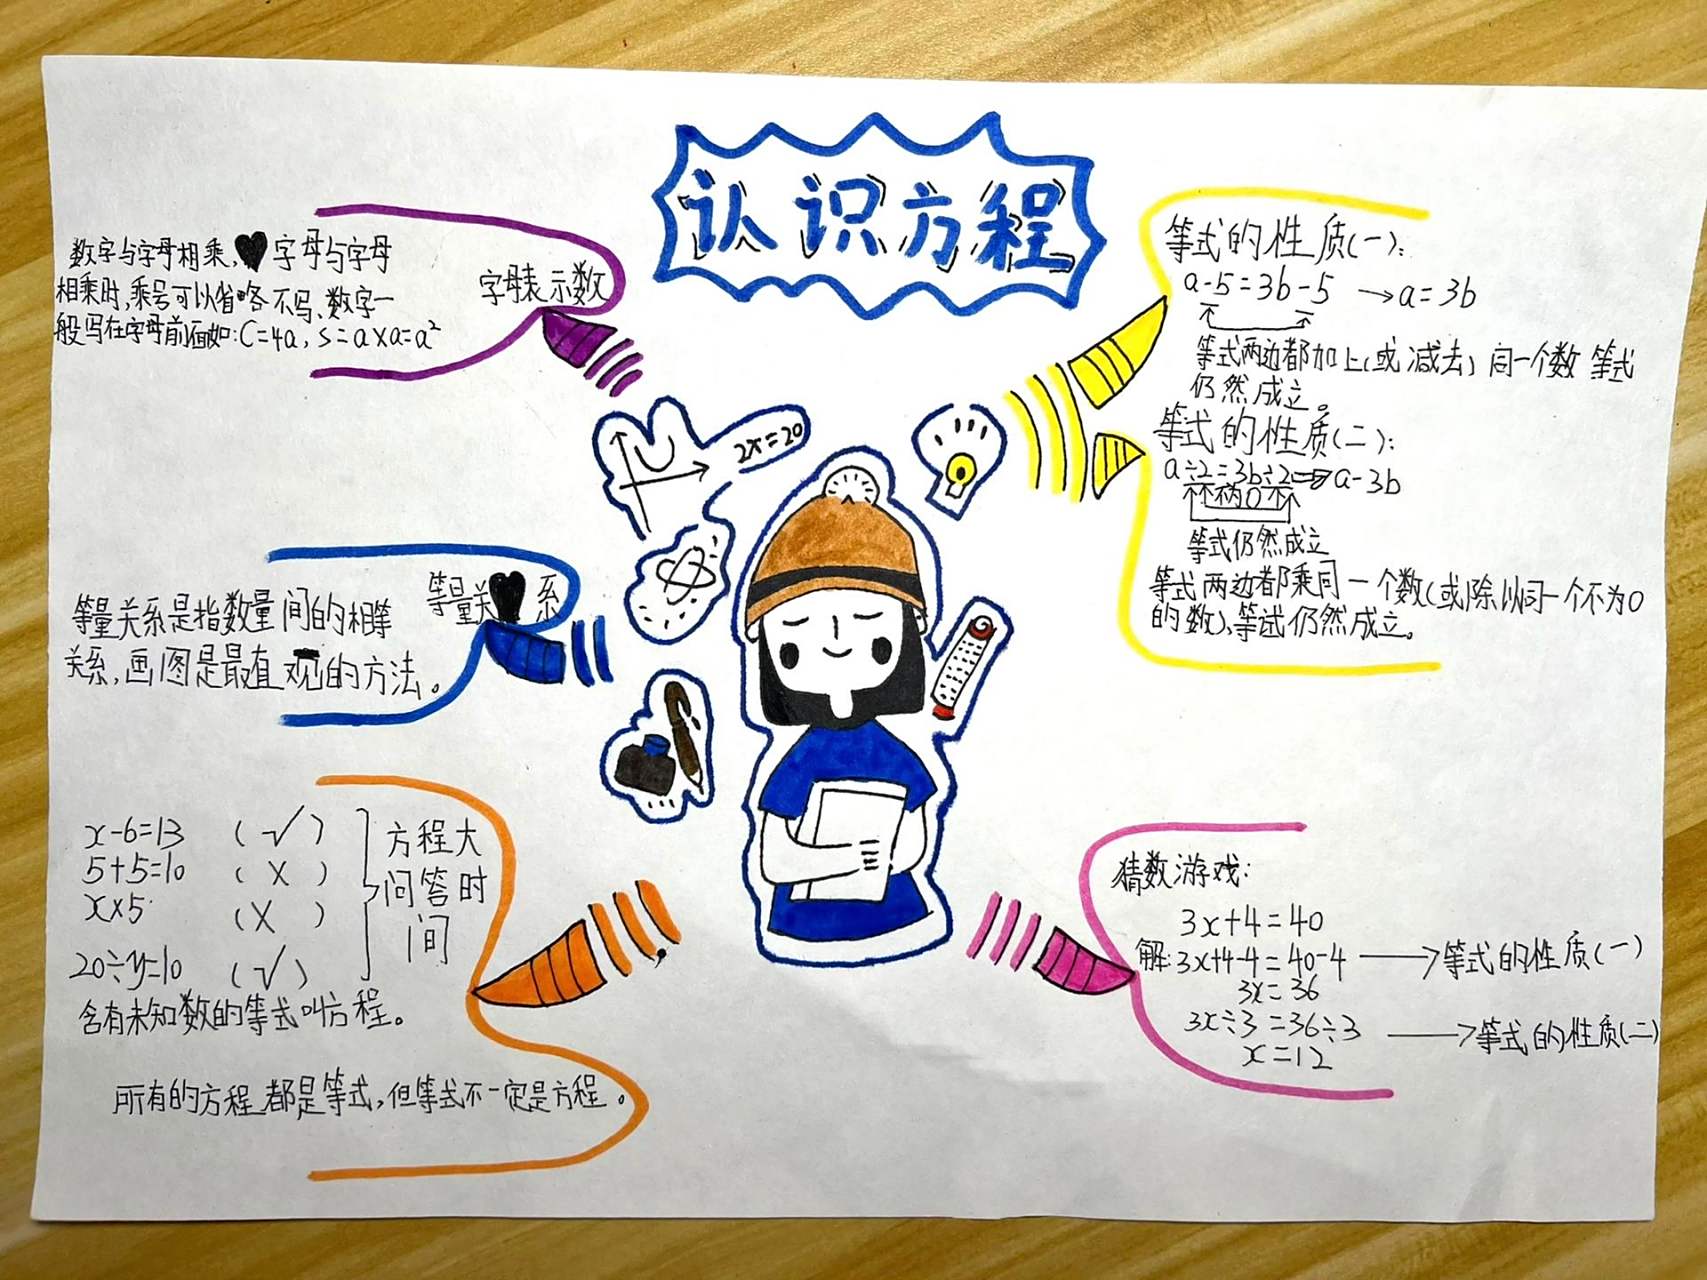 认识方程
数字与字母相乘,字母与字母
相乘时,乘号可以省略不写、数字一
般写在字母前面如:C=4a,S=a×a=a²
字母表示数
等量关系
等量关系是指数量间的相等
关系,画图是最直观的方法。
x-6=13 (√)
5+5=10 (×)
x×5 (×)
20÷y=10 (√)
方程大
问答时
间
含有未知数的等式叫方程。
所有的方程都是等式,但等式不一定是方程。
2x=20
等式的性质(一):
a-5=3b-5 →a=3b
等式两边都加上(或减去)同一个数 等式
仍然成立。
等式的性质(二):
a÷2=3b÷2 a-3b
0不
等式仍然成立
等式两边都乘同一个数(或除以同一个不为0
的数),等式仍然成立。
猜数游戏:
3x+4=40
解:3x+4-4=40-4 →等式的性质(一)
3x=36
3x÷3=36÷3 →等式的性质(二)
x=12